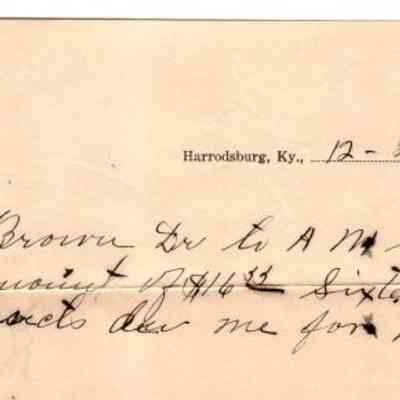 Harrodsburg, Ky., 12 -
Brown Dr to A M
mount of $16 33
cts due me for